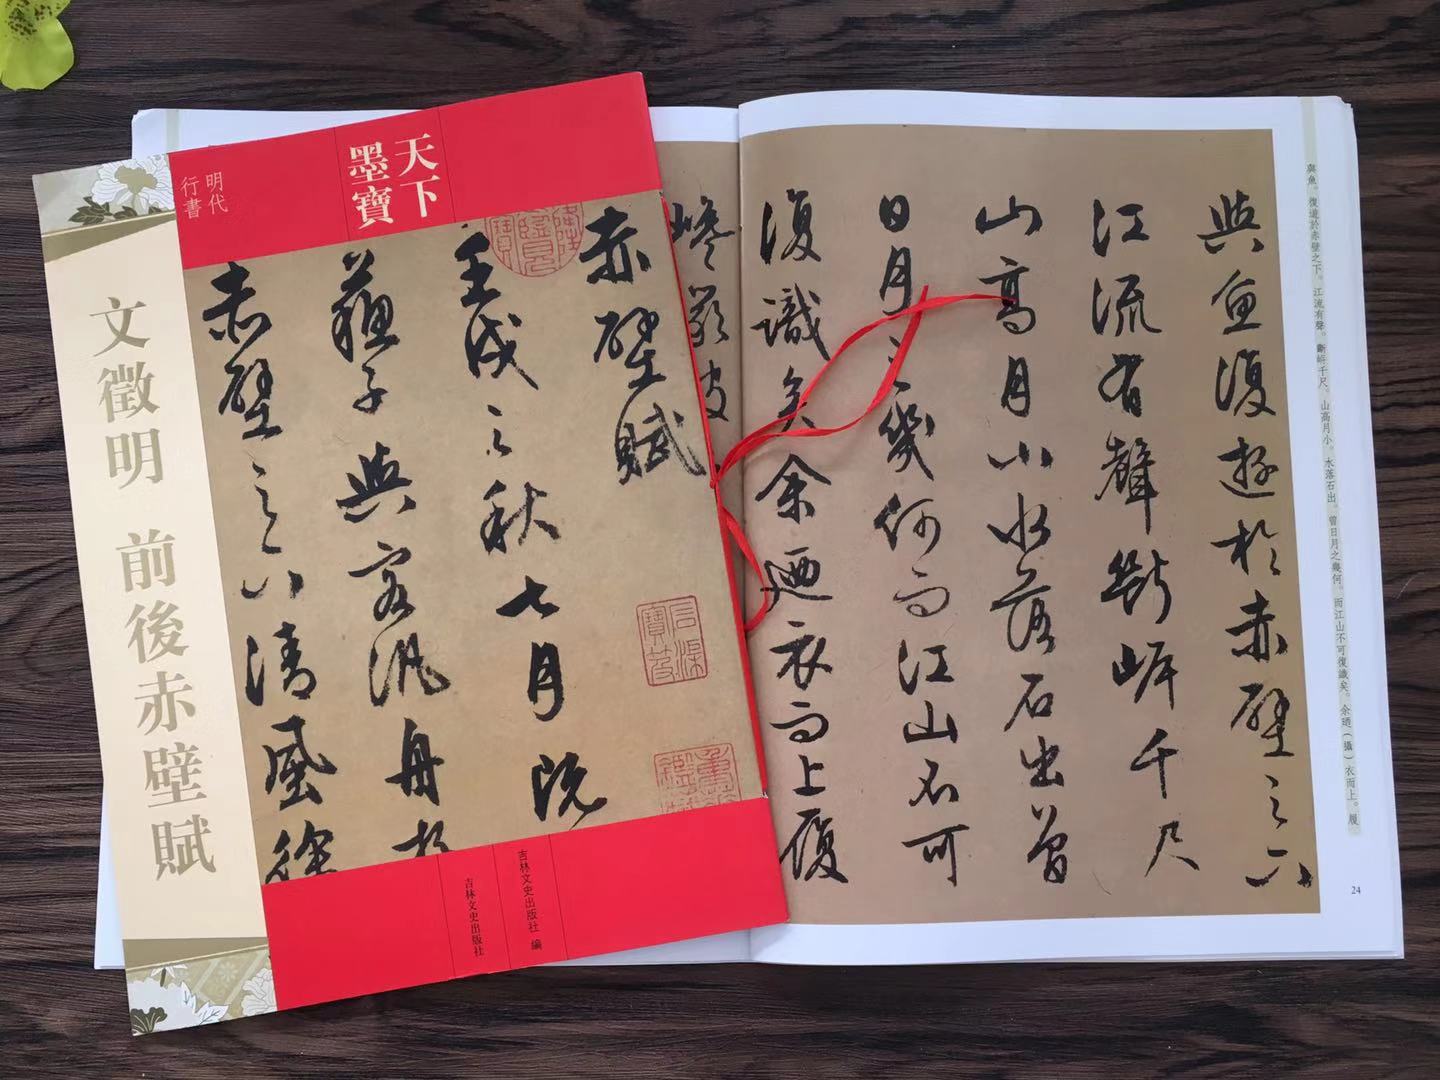 天下
墨寶
明代
行書
文徵明 前後赤壁賦
赤壁賦
壬戌之秋七月既
蘇子與客汎舟於
赤壁之下清風徐
吉林文史出版社 編
吉林文史出版社
與魚。復遊於赤壁之下。江流有聲。斷岸千尺。山高月小。水落石出。曾日月之幾何。而江山不可復識矣。余迺(攝)衣而上。履
與魚復遊於赤壁之下
江流有聲斷岸千尺
山高月小水落石出曾
日月之幾何而江山不可
復識矣余迺衣而上履
24